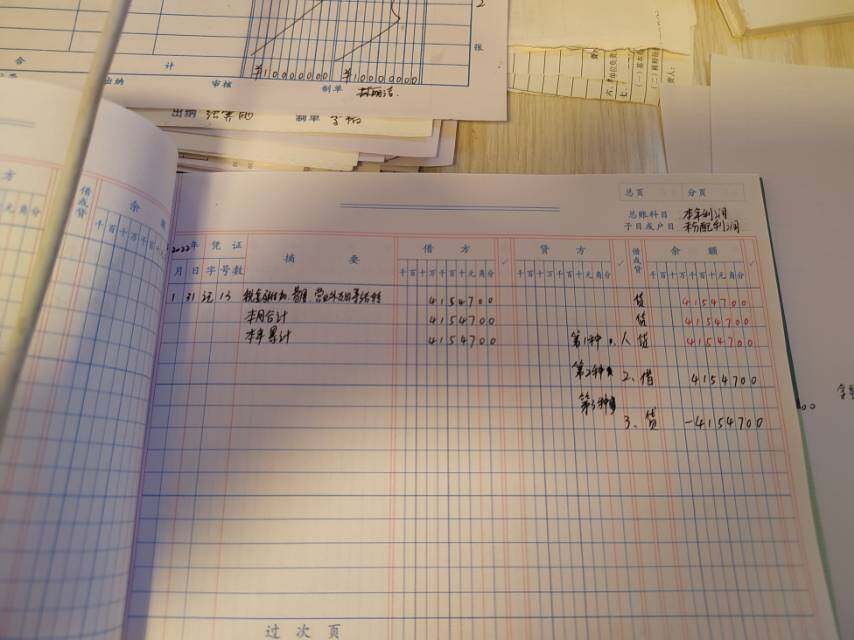 合
计
张
¥10000000 ¥10000000
出纳 审核 制单
出纳 制单
总页 分页
总账科目 本年利润
子目或户目 未分配利润
方 借或贷 余 额
元角分 千百十万千百十元角分
2022年 凭证 摘 要 借 方 ✓ 贷 方 ✓ 借或贷 余 额 ✓
月 日 字 号数 千百十万千百十元角分 千百十万千百十元角分 千百十万千百十元角分
1 31 记 13 4154700 贷 4154700
本月合计 4154700 贷 4154700
本年累计 4154700 第1种 1、贷 4154700
第2种 2、借 4154700
第3种 3、贷 -4154700
过 次 页